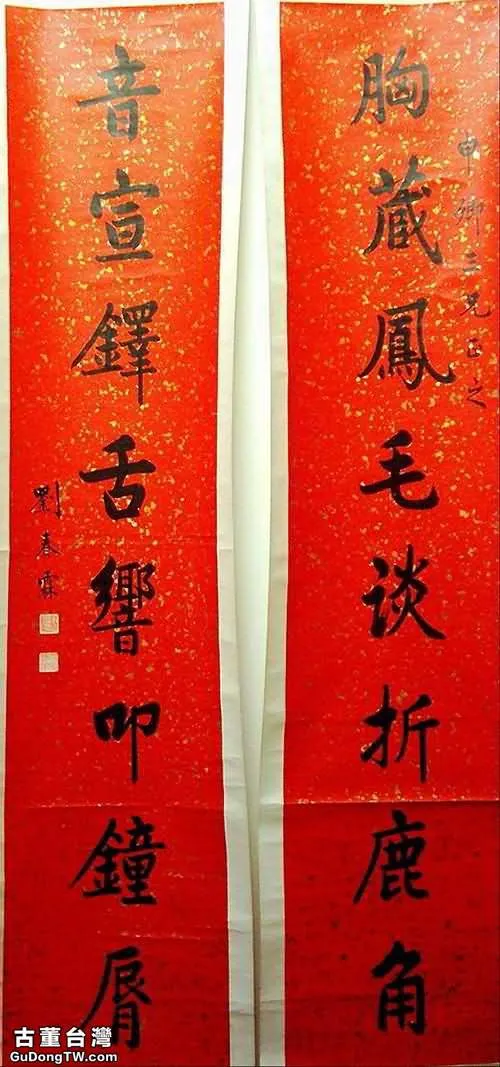 申卿三兄正之
胸藏鳳毛谈折鹿角
音宣鐸舌響叩鐘脣
劉春霖
古董台灣
GuDongTW.com